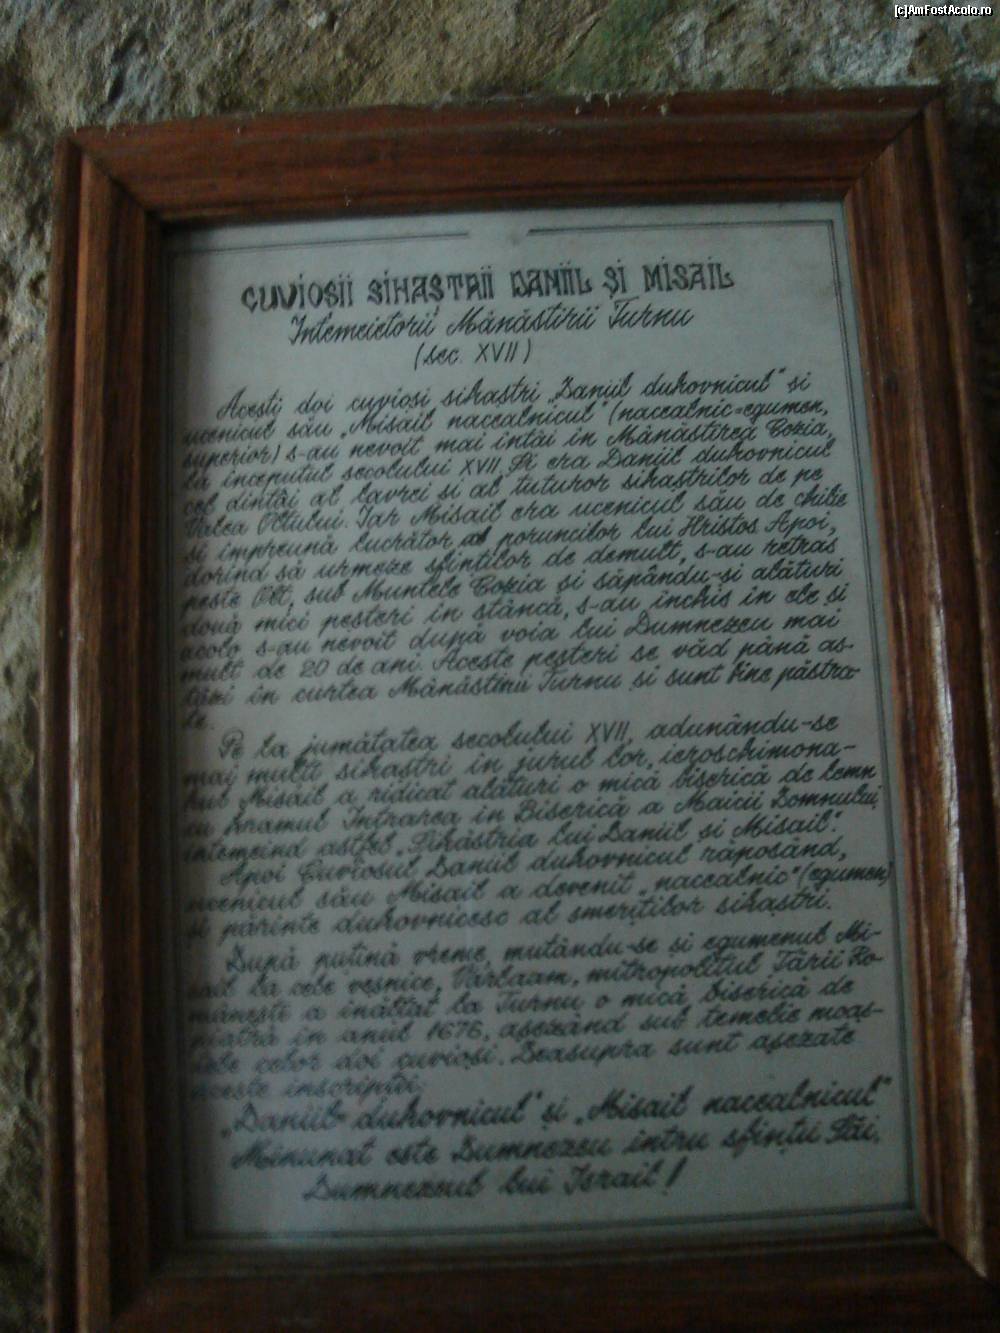 [c]AmFostAcolo.ro
CUVIOȘII SIHAȘTRII DANIIL ȘI MISAIL
Întemeietorii Mânăstirii Turnu
(sec. XVII)
Acești doi cuvioși sihaștri „Daniil duhovnicul" și
ucenicul său „Misail naccealnicul" (naccealnic=egumen,
superior) s-au nevoit mai întâi în Mânăstirea Cozia,
la începutul secolului XVII. Și era Daniil duhovnicul
cel dintâi al lavrei și al tuturor sihaștrilor de pe
Valea Oltului. Iar Misail era ucenicul său de chilie
și împreună lucrător al poruncilor lui Hristos. Apoi,
dorind să urmeze sfinților de demult, s-au retras
peste Olt, sub Muntele Cozia și săpându-și alături
două mici peșteri în stâncă, s-au închis în ele și
acolo s-au nevoit după voia lui Dumnezeu mai
mult de 20 de ani. Aceste peșteri se văd până as-
tăzi în curtea Mânăstirii Turnu și sunt bine păstra-
te.
Pe la jumătatea secolului XVII, adunându-se
mai mulți sihaștri în jurul lor, ieroschimona-
hul Misail a ridicat alături o mică biserică de lemn
cu hramul Intrarea în Biserică a Maicii Domnului,
întemeind astfel „Sihăstria lui Daniil și Misail".
Apoi Cuviosul Daniil duhovnicul răposând,
ucenicul său Misail a devenit „naccealnic" (egumen)
și părinte duhovnicesc al smeriților sihaștri.
După puțină vreme, mutându-se și egumenul Mi-
sail la cele veșnice, Varlaam, mitropolitul Țării Ro-
mânești a înălțat la Turnu o mică biserică de
piatră în anul 1676, așezând sub temelie moaș-
tele celor doi cuvioși. Deasupra sunt așezate
aceste inscripții:
„Daniil duhovnicul" și „Misail naccealnicul"
Minunat este Dumnezeu întru sfinții Săi,
Dumnezeul lui Israil!